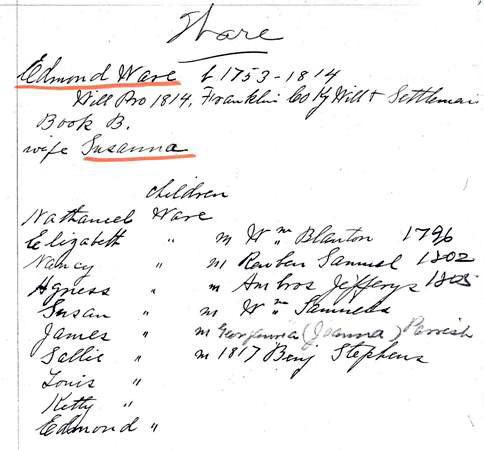 Ware
Edmond Ware b 1753-1814
Will Pro 1814, Franklin Co Ky Will & Settlement
Book B.
wife Susanna
children
Nathaniel Ware
Elizabeth " m Wm Blanton 1796
Nancy " m Reuben Samuel 1802
Agness " m Ambros Jefferys 1805
Susan " m Wm Samuels
James " m Georgeanna (Joanna) Parrish
Sallie " m 1817 Benj Stephens
Louis "
Ketty "
Edmond "